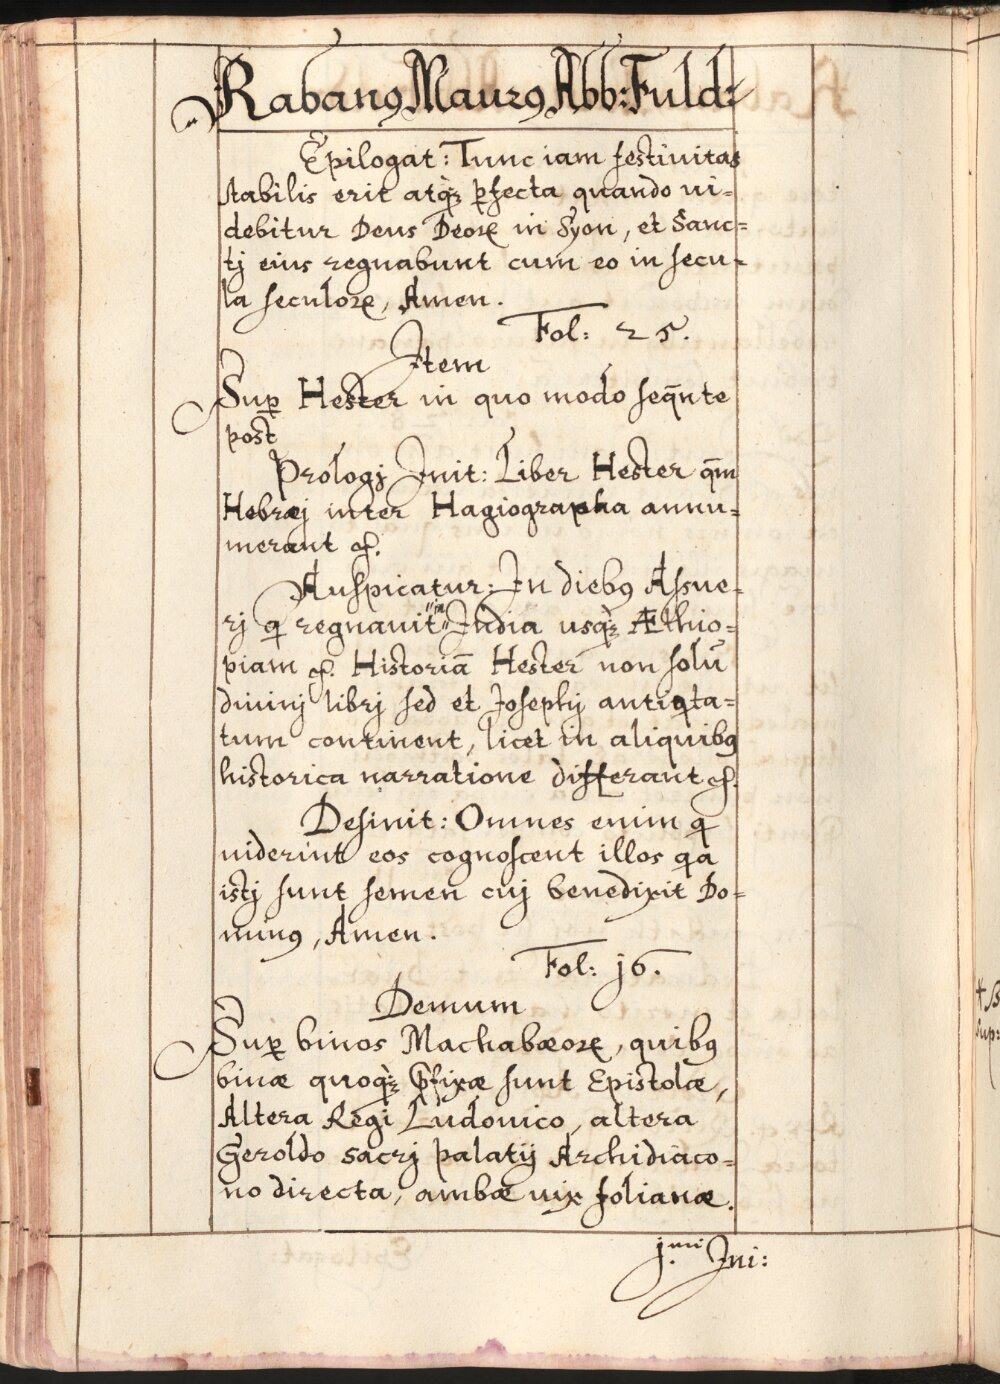 Rabanꝯ Maurꝯ Abb: Fuld:
Epilogat: Tunc iam festiuitas
stabilis erit atqꝫ ꝑfecta quando ui-
debitur Deus Deoꝝ in Syon, et Sanc=
tj eius regnabunt cum eo in secu-
la seculoꝝ, Amen.
Fol: 25.
Item
Suꝑ Hester in quo modo seqūte
post
Prologj Init: Liber Hester qm̄
Hebræj inter Hagiographa annu=
merant &.
Auspicatur: In diebꝯ Assue-
rj qi regnauit "in" India usqꝫ Æthio=
piam &. Historiā Hester non solū
diuinj librj sed et Josephj antiqta=
tum continent, licet in aliquibꝯ
historica narratione differant &.
Desinit: Omnes enim qi
uiderint eos cognoscent illos qa
istj sunt semen cuj benedixit Do=
minꝯ, Amen.
Fol: j6.
Demum
Suꝑ binos Machabæoꝝ, quibꝯ
binæ quoqꝫ p̄fixæ sunt Epistolæ,
Altera Regi Ludouico, altera
Geroldo sacrj palatij Archidiaco=
no directa, ambæ uix folianæ.
j.mi Ini: